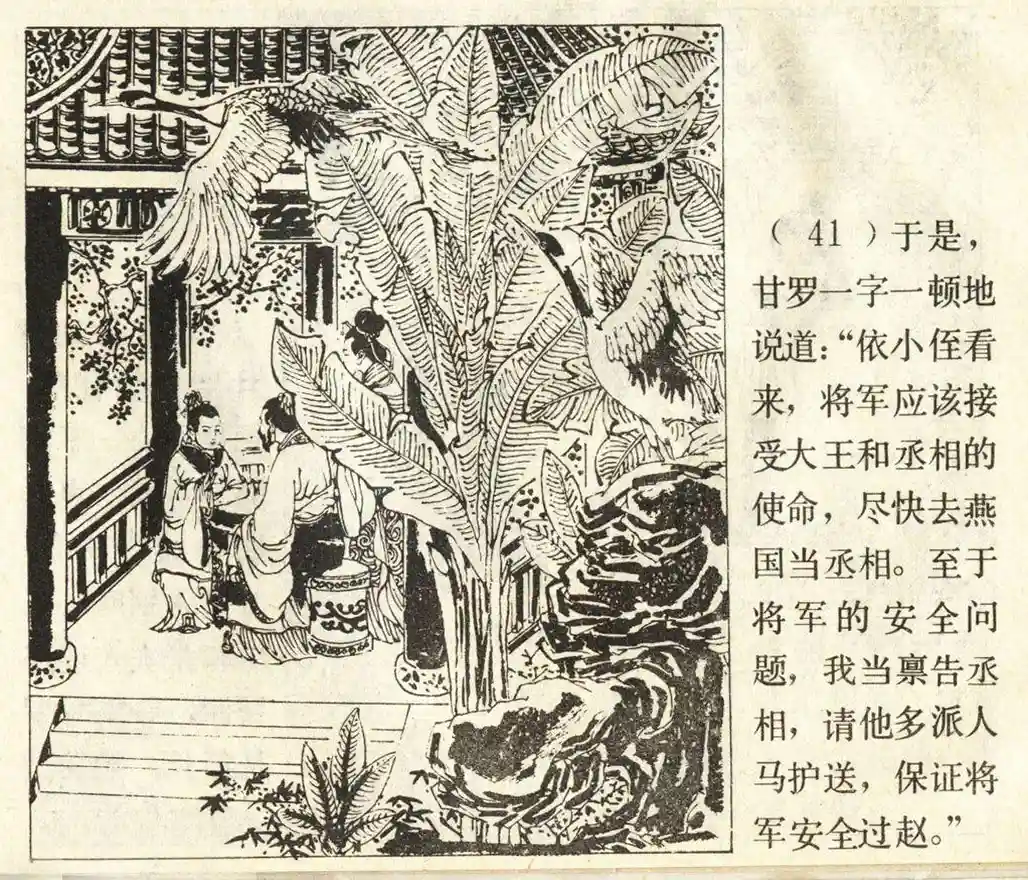 （41）于是，
甘罗一字一顿地
说道：“依小侄看
来，将军应该接
受大王和丞相的
使命，尽快去燕
国当丞相。至于
将军的安全问
题，我当禀告丞
相，请他多派人
马护送，保证将
军安全过赵。”